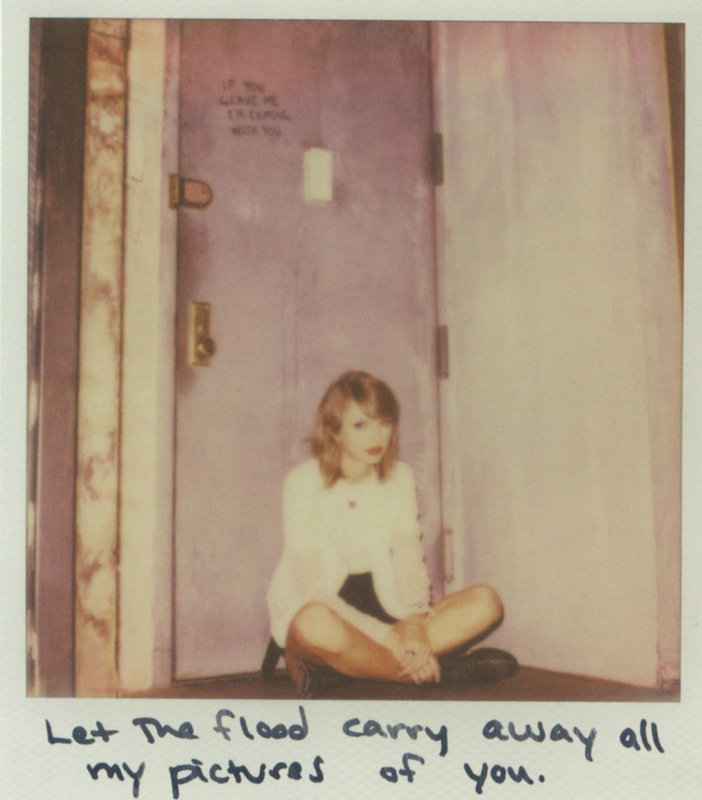 IF YOU
LEAVE ME
I'M COMING
WITH YOU
Let The flood carry away all
my pictures of you.